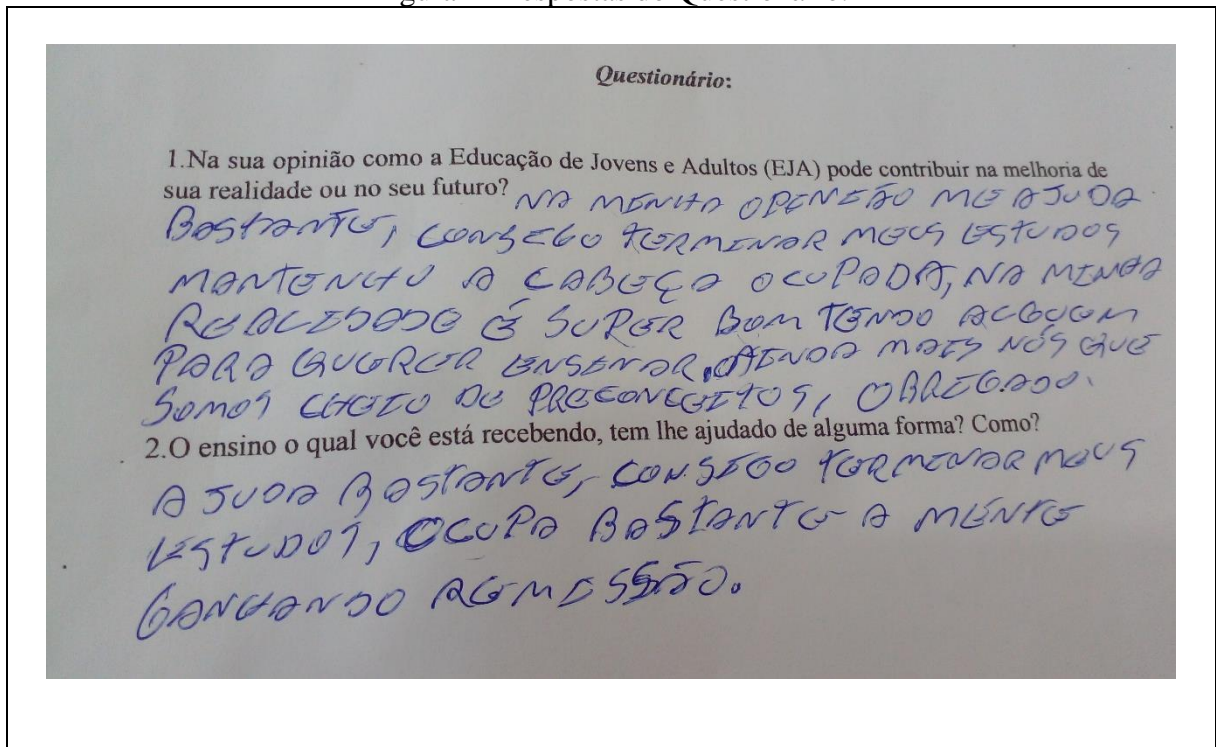 Questionário:
1.Na sua opinião como a Educação de Jovens e Adultos (EJA) pode contribuir na melhoria de
sua realidade ou no seu futuro? NA MINHA OPENIÃO ME AJUDA
BASTANTE, CONSEGO TERMINAR MEUS ESTUDOS
MANTENHO A CABEÇA OCUPADA, NA MINHA
REALIDADE É SUPER BOM TENDO ALGUEM
PARA QUERER ENSENAR, AINDA MAIS NÓS QUE
SOMOS CHEIO DE PRECONCEITOS, OBRIGADO.
2.O ensino o qual você está recebendo, tem lhe ajudado de alguma forma? Como?
AJUDA BASTANTE, CONSIGO TERMINAR MEUS
ESTUDOS, OCUPA BASTANTE A MENTE
GANHANDO REMISSÃO.